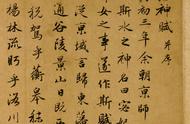 神賦 并序
初三年余朝京師
斯水之神名曰宓
女之事遂作斯賦
從京域言歸東藩
通谷陵景山日既西
稅駕乎蘅皋秣
楊林流眄乎洛川